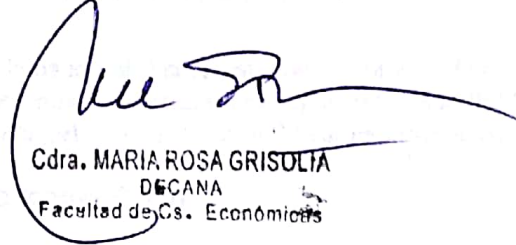 Cdra. MARIA ROSA GRISOLIA
DECANA
Facultad de Cs. Económicas